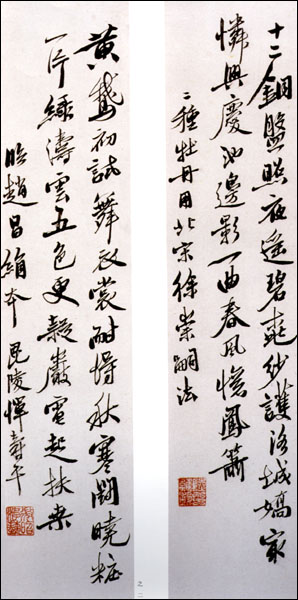 十二銅盤照夜遥碧桃紗護洛城嬌最
憐興慶池邊影一曲春風憶鳳簫
二種牡丹用北宋徐崇嗣法
黄鵞初試舞衣裳耐得秋寒鬪曉粧
一片綠濤雲五色更疑巖電起扶桒
臨趙昌絹本毘陵惲壽平
之二